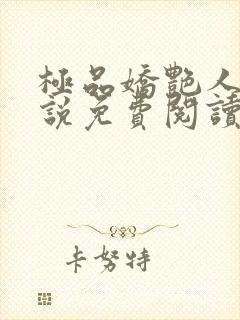 極品嬌艷人
說免費閱讀
卡努特